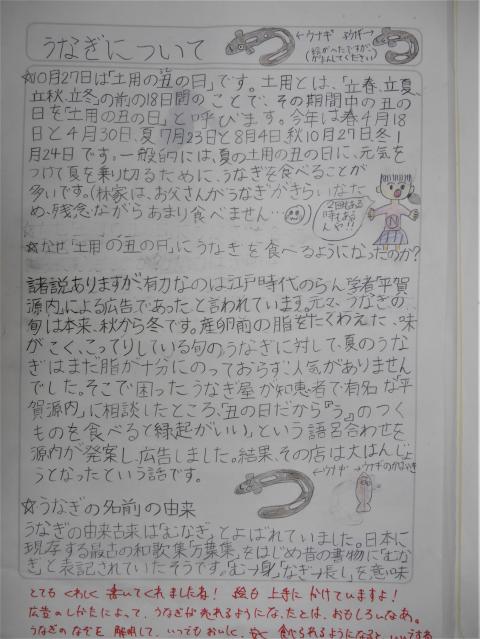 うなぎについて
←ウナギ ヨウナギ→
(絵がへたですが、
がまんしてください)
☆10月27日は「土用の丑の日」です。土用とは、「立春、立夏、
立秋、立冬」の前の18日間のことで、その期間中の丑の
日を「土用の丑の日」と呼びます。今年は春4月18
日と4月30日、夏7月23日と8月4日、秋10月27日、冬1
月24日です。一般的には、夏の土用の丑の日に、元気を
つけて夏を乗り切るために、うなぎを食べることが
多いです。(林家は、お父さんがうなぎがきらいなた
め、残念ながらあまり食べません…)
2回もある
時もある
んや!!
☆なぜ「土用の丑の日」にうなぎを食べるようになったのか?
諸説ありますが有力なのは江戸時代のらん学者「平賀
源内」による広告であったと言われています。元々、うなぎの
旬は本来、秋から冬です。産卵前の脂をたくわえた、味
がこく、こってりしている旬のうなぎに対して、夏のうな
ぎはまだ脂が十分にのっておらず、人気がありません
でした。そこで困ったうなぎ屋が知恵者で有名な「平
賀源内」に相談したところ、「丑の日だから『う』のつく
ものを食べると縁起がいい」という語呂合わせを
源内が発案し、広告しました。結果、その店は大はんじょ
うとなったという話です。
←ウナギ
←ウナギのかばやき
☆うなぎの名前の由来
うなぎの由来古来は「むなぎ」とよばれていました。日本に
現存する最古の和歌集「万葉集」をはじめ昔の書物に「むな
ぎ」と表記されていたそうです。「む→身」「なぎ→長し」を意味
とてもくわしく書いてくれましたね! 絵も上手にかけていますよ!
広告のしかたによって、うなぎが売れるようになったとは、おもしろいなあ。
うなぎのなぞを解明して、いつでもおいしく、安く食べられるようになると